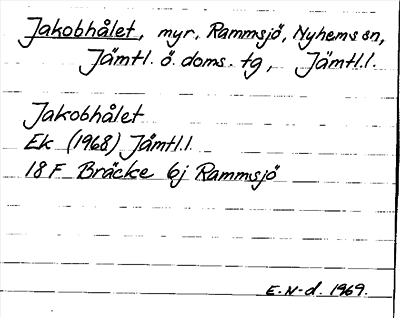 Jakobhålet, myr, Rammsjö, Nyhems sn,
Jämtl. ö. doms. tg, Jämtl.l.
Jakobhålet
Ek (1968) Jämtl.l.
18 F Bräcke 6j Rammsjö
E.N-d. 1969.